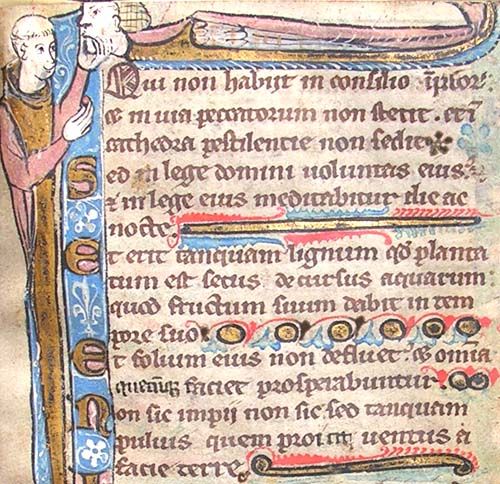 Qui non habijt in consilio impior
& in via peccatorum non stetit. et i
cathedra pestilentie non sedit
Sed in lege domini uoluntas eius
& in lege eius meditabitur die ac
nocte
Et erit tanquam lignum qd planta
tum est secus decursus aquarum
quod fructum suum dabit in tem
pore suo
Et folium eius non defluet: & omia
quecumq faciet prosperabuntur.
Non sic impij non sic sed tanquam
puluis quem proicit uentus a
facie terre